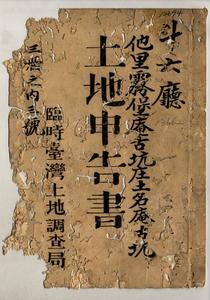 斗六廳
他里霧保庵古坑庄土名庵古坑
土地申告書
臨時臺灣土地調查局
三冊之內三號